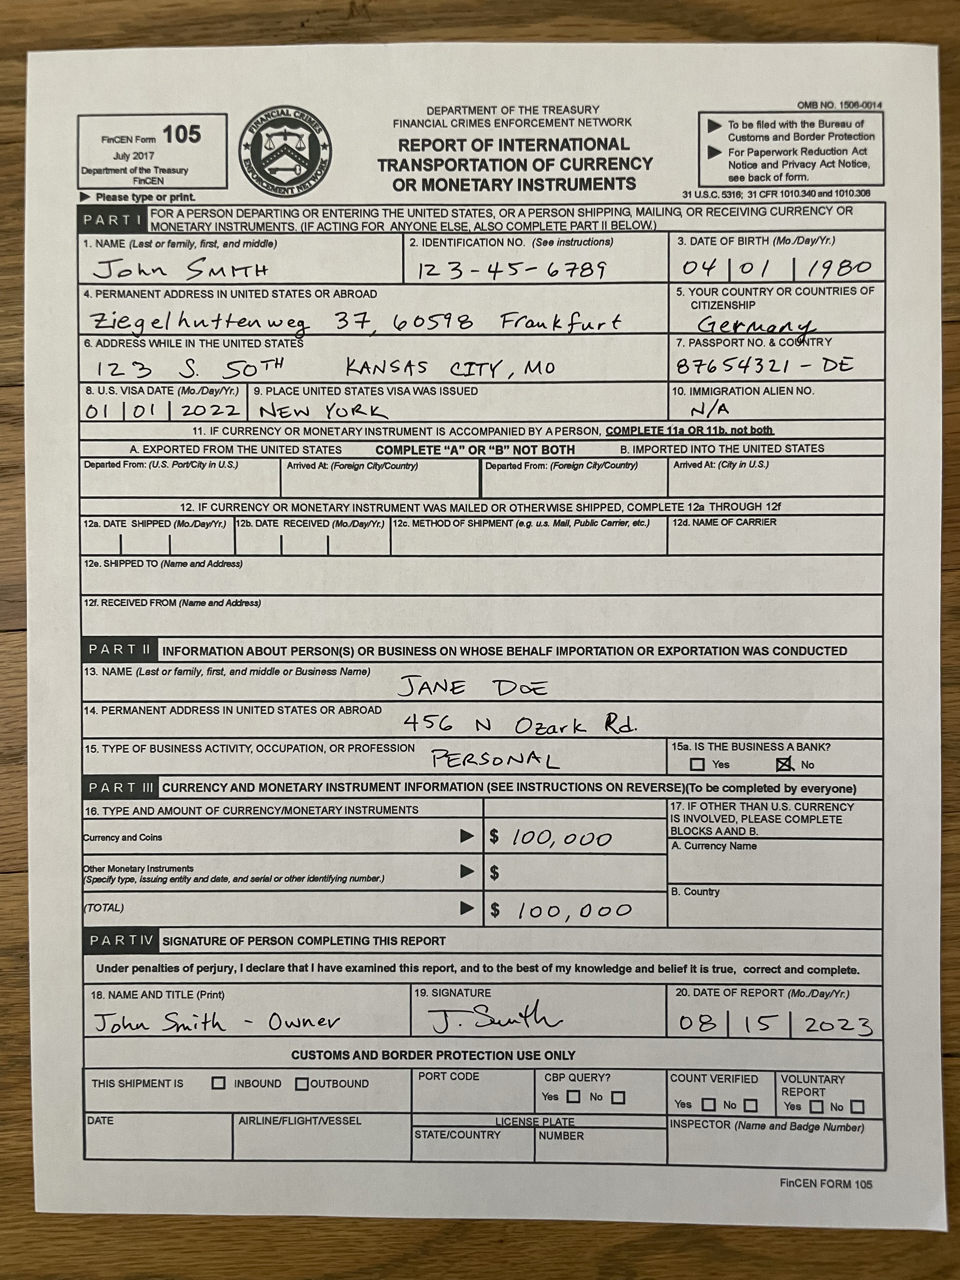 OMB NO. 1506-0014
FinCEN Form 105
July 2017
Department of the Treasury
FinCEN
▶ Please type or print.
FINANCIAL CRIMES ENFORCEMENT NETWORK
DEPARTMENT OF THE TREASURY
FINANCIAL CRIMES ENFORCEMENT NETWORK
REPORT OF INTERNATIONAL
TRANSPORTATION OF CURRENCY
OR MONETARY INSTRUMENTS
▶ To be filed with the Bureau of
Customs and Border Protection
▶ For Paperwork Reduction Act
Notice and Privacy Act Notice,
see back of form.
31 U.S.C. 5316; 31 CFR 1010.340 and 1010.306
PART I FOR A PERSON DEPARTING OR ENTERING THE UNITED STATES, OR A PERSON SHIPPING, MAILING, OR RECEIVING CURRENCY OR
MONETARY INSTRUMENTS. (IF ACTING FOR ANYONE ELSE, ALSO COMPLETE PART II BELOW.)
1. NAME (Last or family, first, and middle) 2. IDENTIFICATION NO. (See instructions) 3. DATE OF BIRTH (Mo./Day/Yr.)
John SMITH 123-45-6789 04 | 01 | 1980
4. PERMANENT ADDRESS IN UNITED STATES OR ABROAD 5. YOUR COUNTRY OR COUNTRIES OF
CITIZENSHIP
Ziegelhuttenweg 37, 60598 Frankfurt Germany
6. ADDRESS WHILE IN THE UNITED STATES 7. PASSPORT NO. & COUNTRY
123 S. 50TH KANSAS CITY, MO 87654321 - DE
8. U.S. VISA DATE (Mo./Day/Yr.) 9. PLACE UNITED STATES VISA WAS ISSUED 10. IMMIGRATION ALIEN NO.
01 | 01 | 2022 NEW YORK N/A
11. IF CURRENCY OR MONETARY INSTRUMENT IS ACCOMPANIED BY A PERSON, COMPLETE 11a OR 11b, not both
A. EXPORTED FROM THE UNITED STATES COMPLETE "A" OR "B" NOT BOTH B. IMPORTED INTO THE UNITED STATES
Departed From: (U.S. Port/City in U.S.) Arrived At: (Foreign City/Country) Departed From: (Foreign City/Country) Arrived At: (City in U.S.)
12. IF CURRENCY OR MONETARY INSTRUMENT WAS MAILED OR OTHERWISE SHIPPED, COMPLETE 12a THROUGH 12f
12a. DATE SHIPPED (Mo./Day/Yr.) 12b. DATE RECEIVED (Mo./Day/Yr.) 12c. METHOD OF SHIPMENT (e.g. u.s. Mail, Public Carrier, etc.) 12d. NAME OF CARRIER
12e. SHIPPED TO (Name and Address)
12f. RECEIVED FROM (Name and Address)
PART II INFORMATION ABOUT PERSON(S) OR BUSINESS ON WHOSE BEHALF IMPORTATION OR EXPORTATION WAS CONDUCTED
13. NAME (Last or family, first, and middle or Business Name)
JANE DOE
14. PERMANENT ADDRESS IN UNITED STATES OR ABROAD
456 N Ozark Rd.
15. TYPE OF BUSINESS ACTIVITY, OCCUPATION, OR PROFESSION 15a. IS THE BUSINESS A BANK?
PERSONAL ☐ Yes ☒ No
PART III CURRENCY AND MONETARY INSTRUMENT INFORMATION (SEE INSTRUCTIONS ON REVERSE)(To be completed by everyone)
16. TYPE AND AMOUNT OF CURRENCY/MONETARY INSTRUMENTS 17. IF OTHER THAN U.S. CURRENCY
IS INVOLVED, PLEASE COMPLETE
BLOCKS A AND B.
Currency and Coins ▶ $ 100,000
A. Currency Name
Other Monetary Instruments
(Specify type, issuing entity and date, and serial or other identifying number.) ▶ $
B. Country
(TOTAL) ▶ $ 100,000
PART IV SIGNATURE OF PERSON COMPLETING THIS REPORT
Under penalties of perjury, I declare that I have examined this report, and to the best of my knowledge and belief it is true, correct and complete.
18. NAME AND TITLE (Print) 19. SIGNATURE 20. DATE OF REPORT (Mo./Day/Yr.)
John Smith - Owner J. Smith 08 | 15 | 2023
CUSTOMS AND BORDER PROTECTION USE ONLY
THIS SHIPMENT IS ☐ INBOUND ☐ OUTBOUND PORT CODE CBP QUERY? COUNT VERIFIED VOLUNTARY
REPORT
Yes ☐ No ☐ Yes ☐ No ☐ Yes ☐ No ☐
DATE AIRLINE/FLIGHT/VESSEL LICENSE PLATE INSPECTOR (Name and Badge Number)
STATE/COUNTRY NUMBER
FinCEN FORM 105